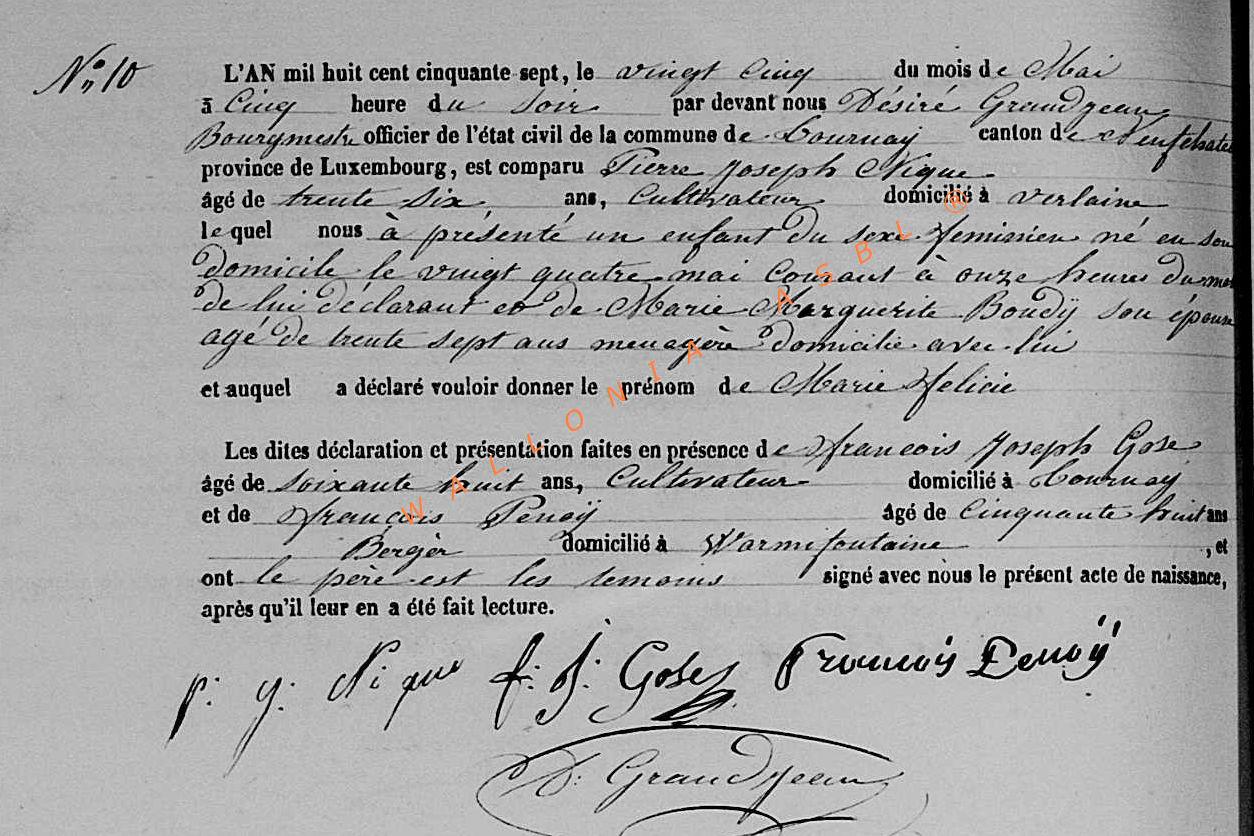 N° 10
L'AN mil huit cent cinquante-sept, le vingt cinq du mois de Mai
à Cinq heure du soir par devant nous Désiré Grandjean
Bourgmestre officier de l'état civil de la commune de Tournay canton de Neufchateau
province de Luxembourg, est comparu Pierre Joseph Nique
âgé de trente six ans, Cultivateur domicilié à verlaine
lequel nous à présenté un enfant du sexe feminien né en son
domicile le vingt quatre mai Courant à onze heures du
de lui déclarant et de Marie Marguerite Boudÿ son épouse
agé de trente sept ans menagère domicilie avec lui
et auquel a déclaré vouloir donner le prénom de Marie Felicie
Les dites déclaration et présentation faites en présence de francois Joseph Gose
âgé de soixante huit ans, Cultivateur domicilié à Tournay
et de françois Penoÿ âgé de Cinquante huit ans
Berger domicilié à Warmifontaine, et
ont le père est les temoins signé avec nous le présent acte de naissance,
après qu'il leur en a été fait lecture.
p: j: Nique f: J: Gose Francois Penoÿ
D: Grandjean
WALLONIA ASBL ®